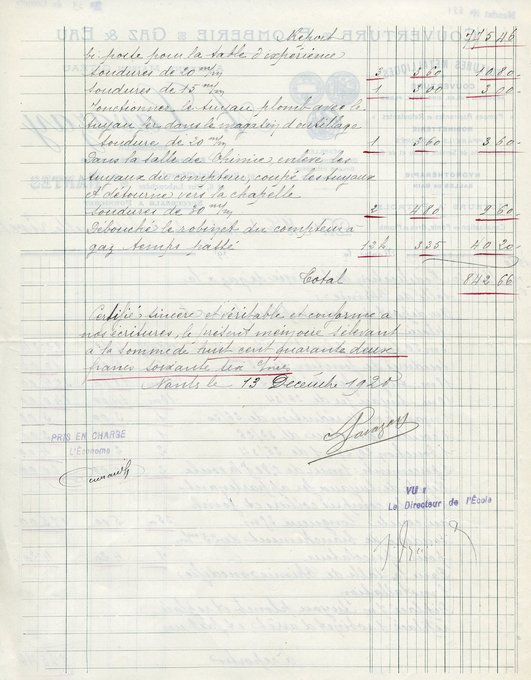 Report 775 46
bi-poste pour la table d'expérience
Soudures de 20 m/m 3 3.60 10.80
Soudures de 15 m/m 1 3.00 3.00
Jonctionner le tuyau plomb avec le
tuyau fer dans le magasin d'outillage
Soudure de 20 m/m 1 3.60 3.60
Dans la salle de Chimie enlevé les
tuyaux du compteur, coupé les tuyaux
et détourné vers la chapelle
Soudures de 30 m/m 2 4.80 9.60
Débouché le robinet du compteur à
gaz temps passé 12h 3.35 40.20
Total 842 66
Certifié sincère et véritable et conforme à
nos écritures, le présent mémoire s'élevant
à la somme de huit cent quarante deux
francs soixante six
Nantes le 13 Décembre 1920
PRIS EN CHARGE
L'Économe
VU :
Le Directeur de l'École